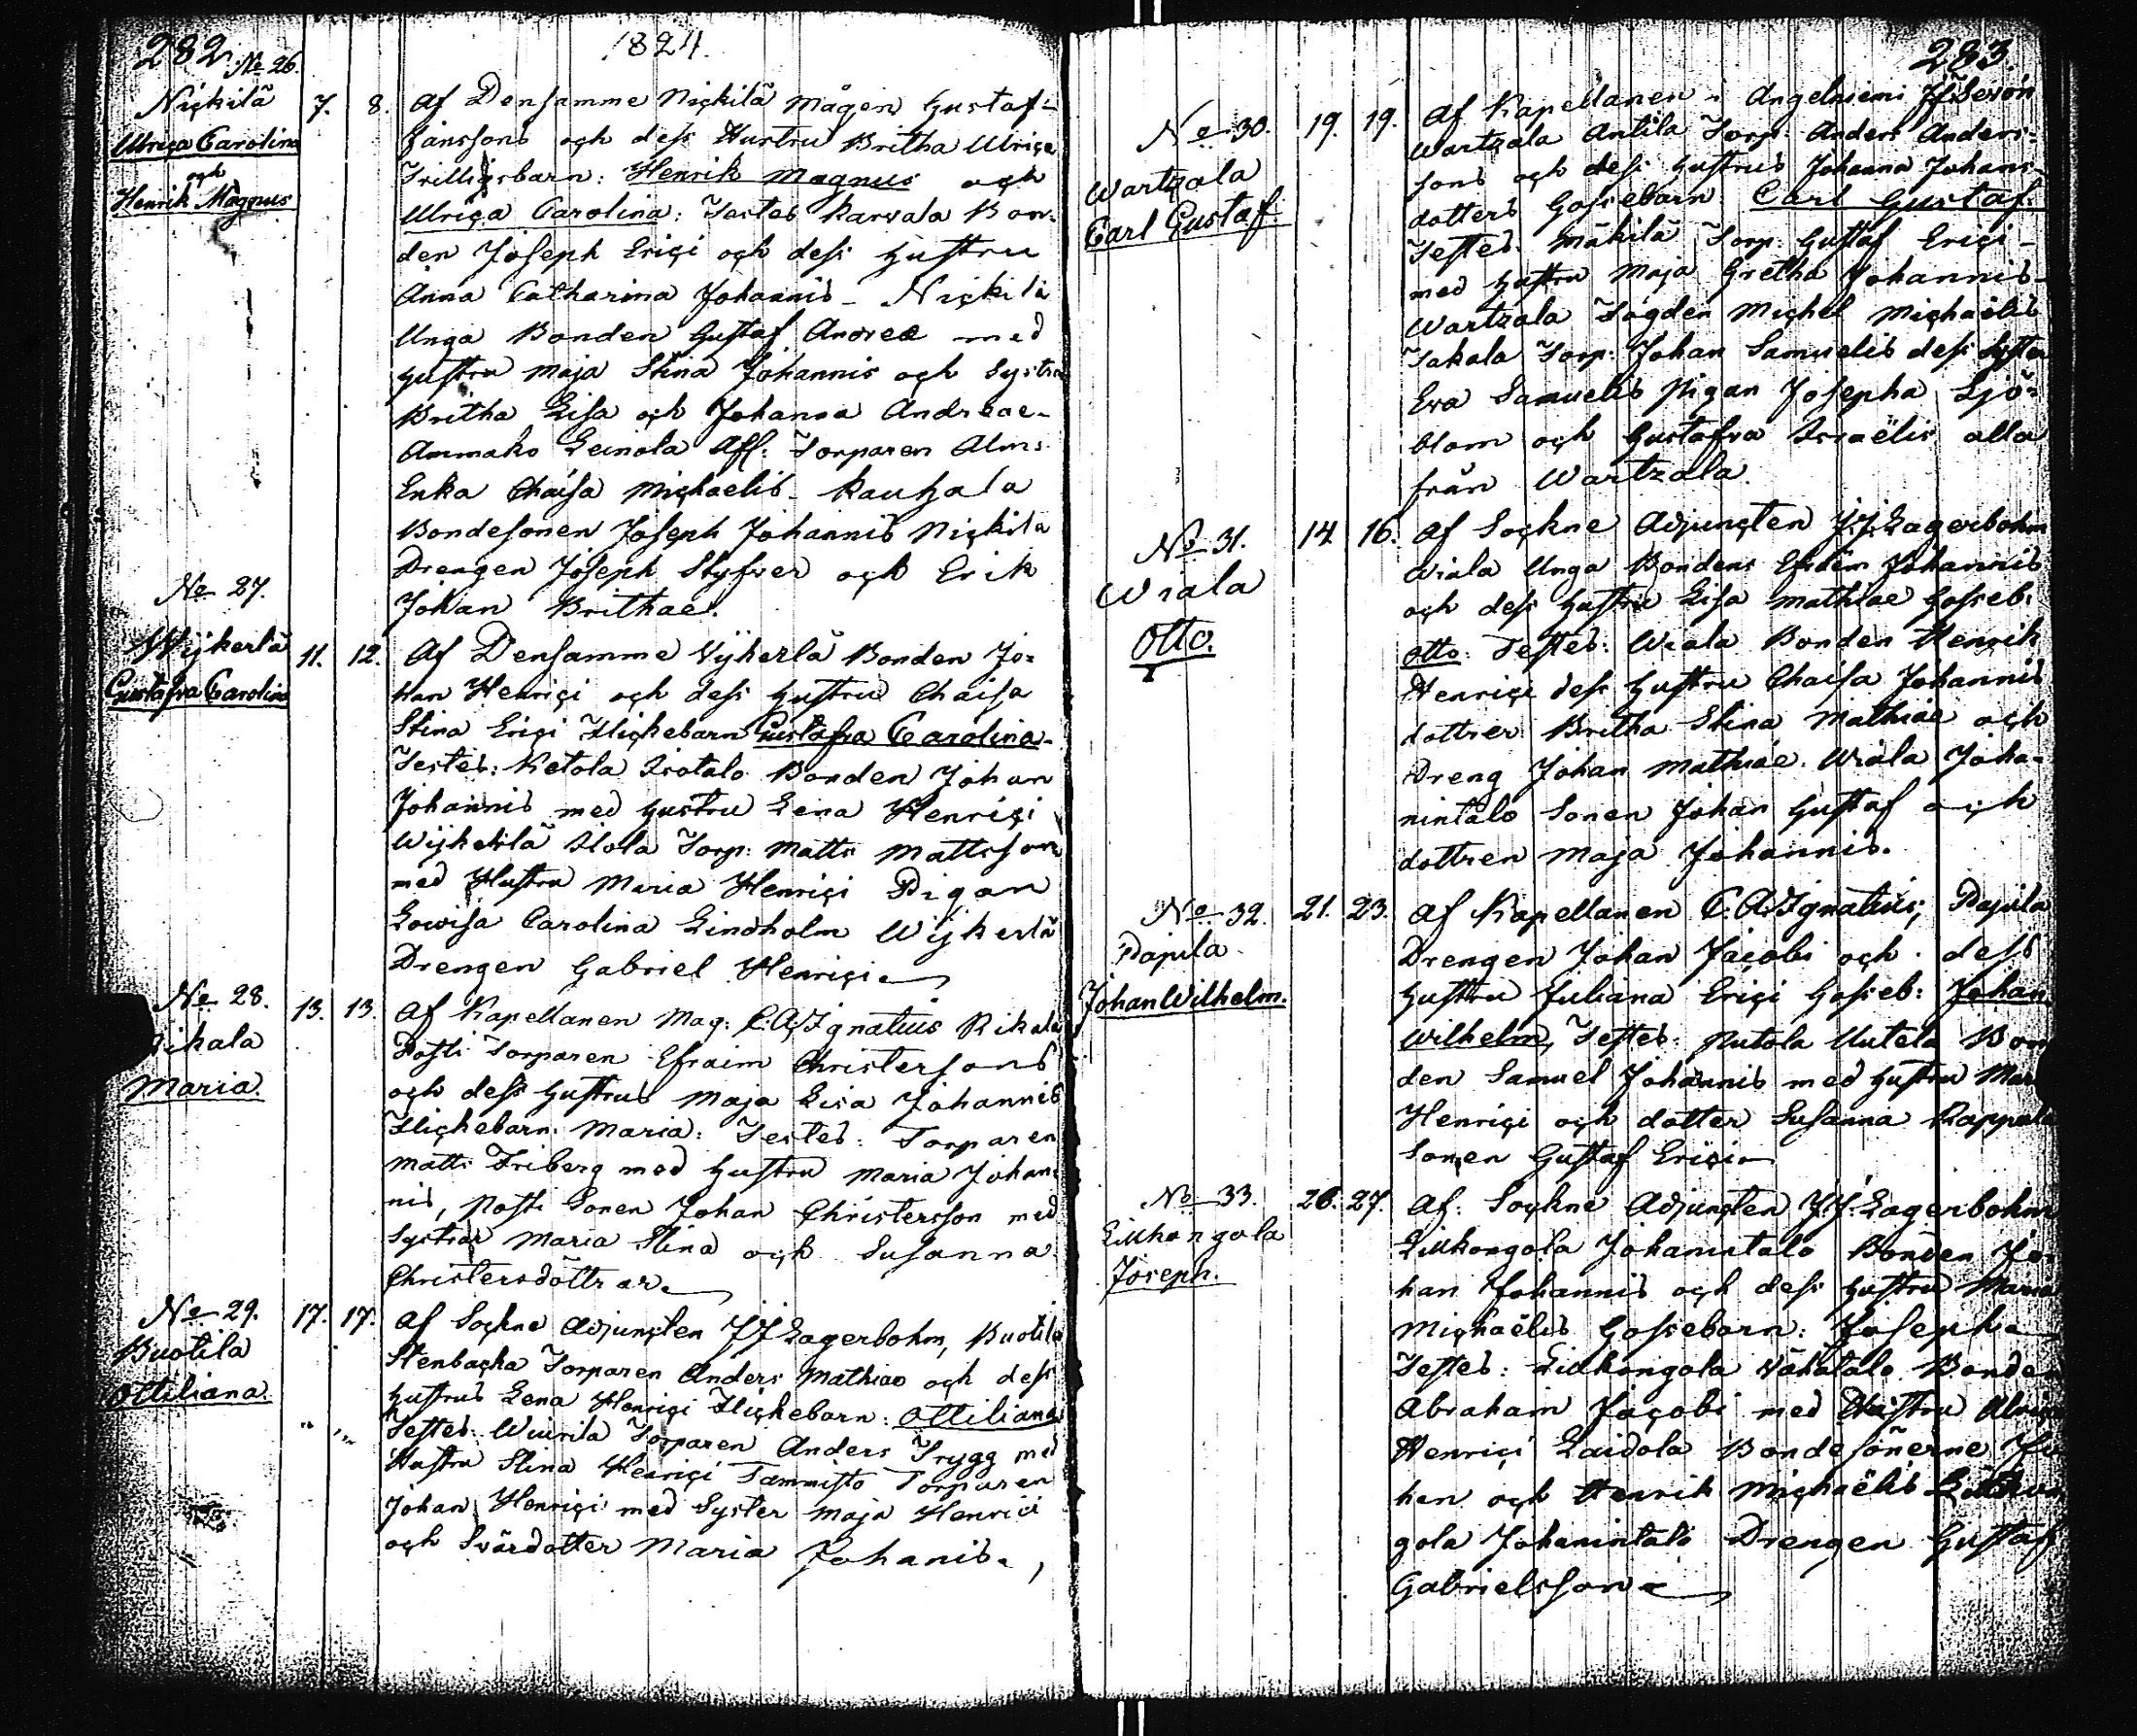 282
1824.
No 26.
Nickilä
Ulrica Carolina
och
Henrik Magnus
7. 8.
Af Densamme Nickilä Mågen Gustaf
Janssons och dess Hustru Britha Ulrica
Trillingsbarn: Henrik Magnus och
Ulrica Carolina: Testes Karvala Bon-
den Joseph Erici och dess Hustru
Anna Catharina Johannis - Nickilä
Unga Bonden Gustaf Andreæ med
Hustru Maja Stina Johannis och Systra
Britha Lisa och Johanna Andreae-
Ammako Leinola Afl: Torparen Alms
Enka Chaisa Michaelis - Kautzala
Bondesonen Joseph Johannis Nickilä
Drengen Joseph Styfver och Erik
Johan Brithae.
No 27.
Wijkerlä
Gustafva Carolina
11. 12.
Af Densamme Vijkerlä Bonden Jo-
han Henrici och dess Hustru Chaisa
Stina Erici Flickebarn Gustafva Carolina-
Testes: Ketola Isotalo Bonden Johan
Johannis med Hustru Lena Henrici
Wijkerlä Ilola Torp: Matts Mattsson
med Hustru Maria Henrici Pigan
Lowisa Carolina Lindholm Wijkerlä
Drengen Gabriel Henrici
No 28.
ikala
Maria.
13. 13.
Af Kapellanen Mag: C:A:Ignatius Rikala
Posti Torparen Efraim Christersons
och dess Hustrus Maja Lisa Johannis
Flickebarn: Maria: Testes: Torparen
Matts Friberg med Hustru Maria Johan-
nis, Posti Sonen Johan Christersson med
Systrar Maria Stina och Susanna
Christersdöttrar
No 29.
Buotila
Ottiliana.
17. 17.
Af Sockne Adjuncten J J Lagerbohm, Buotila
Stenbacka Torparen Anders Mathiae och dess
Hustrus Lena Henrici Flickebarn: Ottiliana
Testes: Wuirila Torparen Anders Trygg med
Hustru Stina Henrici Tammisto Torparen
Johan Henrici med Syster Maja Henrici
och Svärdotter Maria Johanis.
283.
No 30.
Wartzala
Carl Gustaf.
19. 19.
Af Kapellanen i Angelniemi
Wartzala Antila Torp: Anders Anders-
sons och dess Hustrus Johanna Johans-
dotters Gossebarn Carl Gustaf.
Testes: Mäkilä Torp: Gustaf Erici-
med Hustru Maja Gretha Johannis-
Wartzala Fogden Michel Michaëlis
Takala Torp: Johan Samuelis dess Syster
Eva Samuelis Pigan Josepha Sjö-
blom och Gustafva Israëlis alla
från Wartzala.
No 31.
Wiala
Otto.
14 16.
Af Sockne Adjuncten J:J: Lagerbohm
Wiala Unga Bondens Efraim Johannis
och dess Hustru Lisa Mathiae Gosseb:
Otto: Testes: Wiala Bonden Henrik
Henrici dess Hustru Chaisa Johannis
dottrer Britha Stina Mathiae och
Dreng Johan Mathiae. Wiala Joha-
nintalo Sonen Johan Gustaf och
dottren Maja Johannis.
No 32.
Pajula
Johan Wilhelm.
21. 23.
Af Kapellanen C:A:Ignatius, Pajula
Drengen Johan Jacobi och dess
Hustru Juliana Erici Gosseb: Johan
Wilhelm, Testes: Putola Uutela Bon
den Samuel Johannis med Hustru Mar
Henrici och dotter Susanna Kappala
Sonen Gustaf Erici
No 33.
Liukongola
Joseph.
26. 27.
Af: Sockne Adjuncten J:J: Lagerbohm
Liukongola Johanintalo Bonden Jo-
han Johannis och dess Hustru Maria
Michaëlis Gossebarn: Joseph
Testes: Liukongola Vähätalo Bonden
Abraham Jacobi med Hustru Ulrica
Henrici Laidola Bondesönerne Jo
han och Henrik Michaëlis Liukon
gola Johanintalo Drengen Gustaf
Gabrielsson